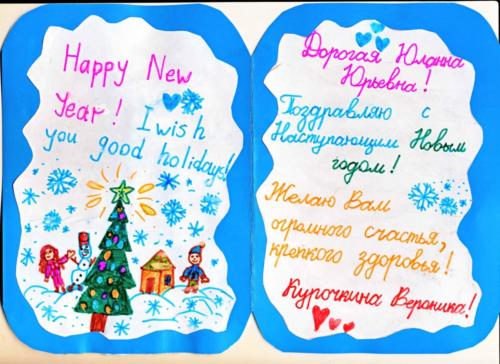 Happy New
Year! I wish
you good holidays!
Дорогая Юланна
Юрьевна!
Поздравляю с
Наступающим Новым
годом!
Желаю Вам
огромного счастья,
крепкого здоровья!
Курочкина Вероника!